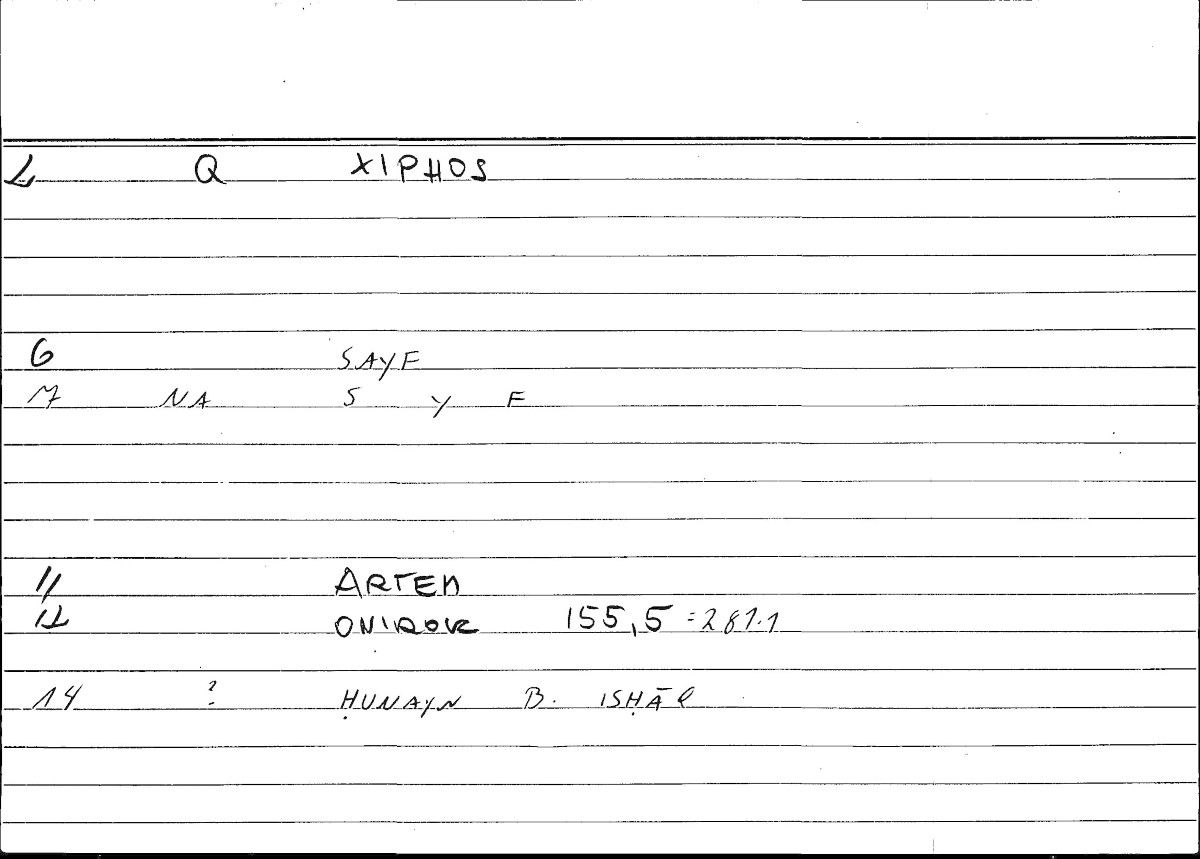 2 Q XIPHOS
6 SAYF
7 NA S Y F
11 ARTEM
12 ONIROK 155,5 = 287.1
14 ? ḤUNAYN B. ISḤĀQ